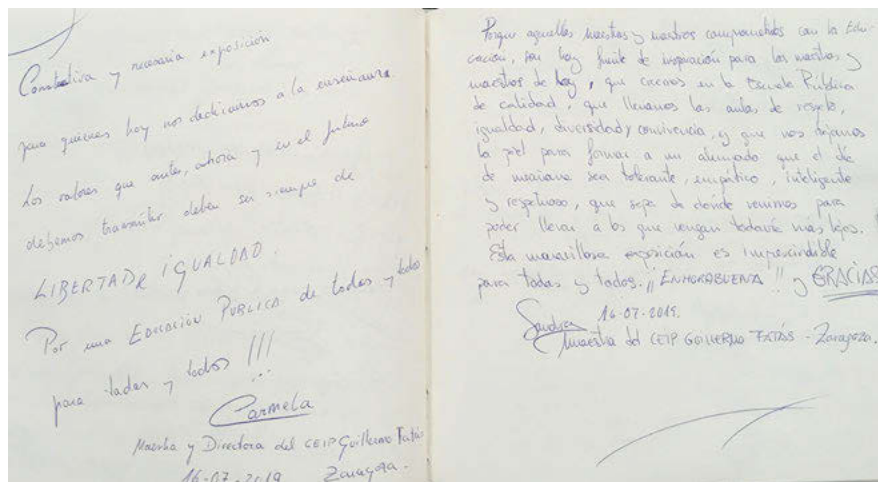 Combativa y necesaria exposición
para quienes hoy nos dedicamos a la enseñanza.
Los valores que antes, ahora y en el futuro
debemos transmitir deben ser siempre de
LIBERTAD E IGUALDAD.
Por una EDUCACIÓN PÚBLICA de todas y todos
para todas y todos !!!
Carmela
Maestra y Directora del CEIP Guillermo Fatás
16-07-2019 Zaragoza.
Porque aquellas maestras y maestros comprometidos con la Edu-
cación, son hoy fuente de inspiración para las maestras y
maestros de hoy, que creemos en la Escuela Pública
de calidad, que llenamos las aulas de respeto,
igualdad, diversidad y convivencia, y que nos dejamos
la piel para formar a un alumnado que el día
de mañana sea tolerante, empático, inteligente
y respetuoso, que sepa de donde venimos para
poder llevar a los que vengan todavía más lejos.
Esta maravillosa exposición es imprescindible
para todas y todos. ¡¡ ENHORABUENA !! y GRACIAS
Sandra 16-07-2019.
Maestra del CEIP GUILLERMO FATÁS - Zaragoza.